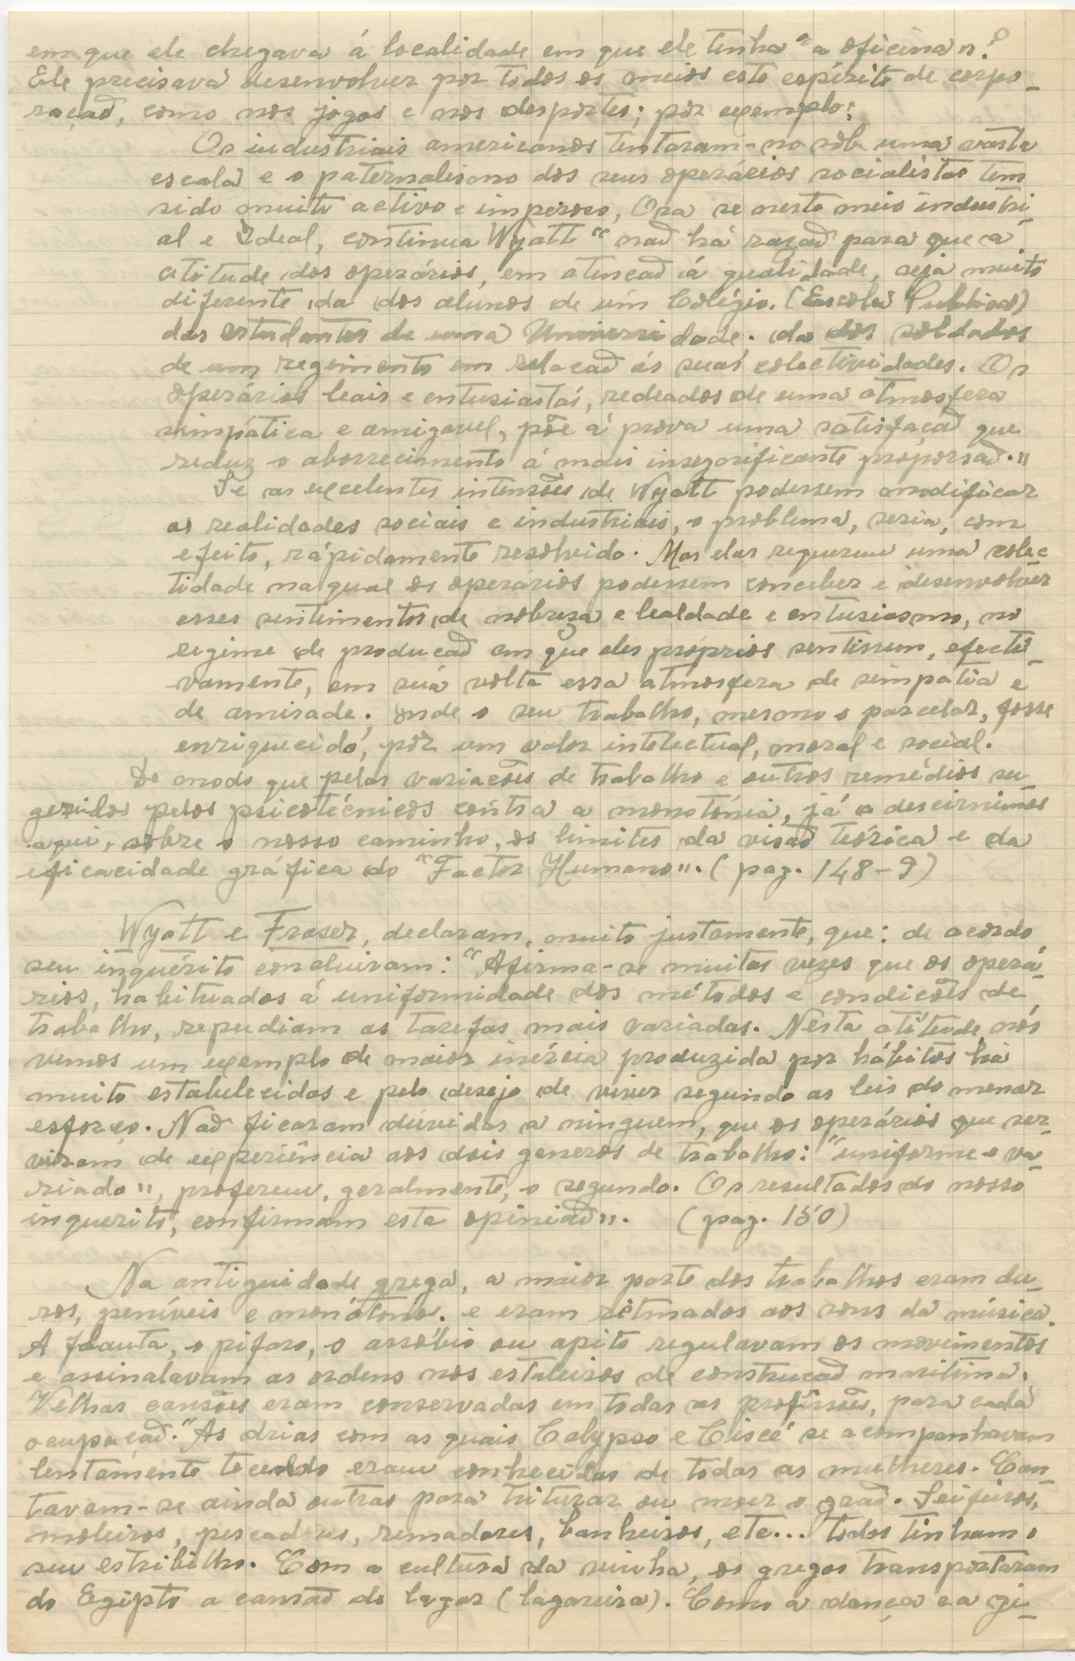 em que ele chegava á localidade em que ele tinha "a oficina"?
Ele precisava desenvolver por todos os meios este espírito de corpo-
ração, como nos jogos e nos desportes; por exemplo:
Os industriais americanos tentaram-no sob uma vasta
escala e o paternalismo dos seus operários socialistas tem
sido muito activo e imperoso, Ora se neste meio industri-
al e Ideal, continua Wyatt "não há razão para que a
atitude dos operários, em atenção á qualidade, seja muito
diferente da dos alunos de um Colégio. (Escola Publica)
das estudantes de uma Universidade. da dos soldados
de um regimento em relação ás suas colectividades. Os
operários leais e entusiastas, rodeados de uma atmosfera
simpática e amigavel, põe á prova uma satisfação que
reduz o aborrecimento á mais insegnificante proporsão."
Se as excelentes intensões de Wyatt podessem modificar
as realidades sociais e industriais, o problema, seria, com
efeito, rápidamente resolvido. Mas elas requerem uma colec
tidade na qual os operarios podessem conceber e desenvolver
esses sentimentos de nobresa e lealdade e entusiasmo, no
regime de produção em que eles próprios sentissem, efecti-
vamente, em sua volta essa atmosfera de simpatia e
de amisade. onde o seu trabalho, mesmo o parcelar, fosse
enriquecido, por um valor intelectual, moral e social.
De modo que pelas variações de trabalho e outros remédios su
geridos pelos psicotécnicos contra a monotonia, já a descirnimos
aqui, sobre o nosso caminho, os limites da visão teórica e da
eficacidade gráfica do "Factor Humano". (pag. 148-9)
Wyatt e Fraser, declaram, muito justamente, que: de acordo
seu inquérito concluiram: "Afirma-se muitas vezes que os operá-
rios, habituados á uniformidade dos métodos e condições de
trabalho, repudiam as tarefas mais variadas. Nesta atitude nós
vemos um exemplo de maior inércia produzida por hábitos há
muito estabelecidos e pelo desejo de viver segundo as leis do menor
esforço. Não ficaram dúvidas a ninguem, que os operários que ser-
viram de experiência aos dois generos de trabalho: "uniforme e va-
riado", preferem, geralmente, o segundo. Os resultados do nosso
inquerito, confirmam esta opinião". (pag. 150)
Na antiguidade grega, a maior parte dos trabalhos eram du
ros, peníveis e monótono. e eram ritmados aos sons da música.
A flauta, o pifaro, o assóbio ou apito regulavam os movimentos
e assinalavam as ordens nos estaleiros de construção maritima.
Velhas cansões eram conservadas em todas as profissões, para cada
ocupação. "As árias com as quais Calypso e Circé se acompanhavam
lentamente tecendo eram conhecidas de todas as mulheres. Can-
tavam-se ainda outras para triturar ou moer o grão. Seifeiros,
moleiros, pescadores, remadores, banheiros, etc... todos tinham o
seu estribilho. Com a cultura da vinha, os gregos transportaram
do Egipto a cansão do lagar (lagareira). Como a dança e a gi-